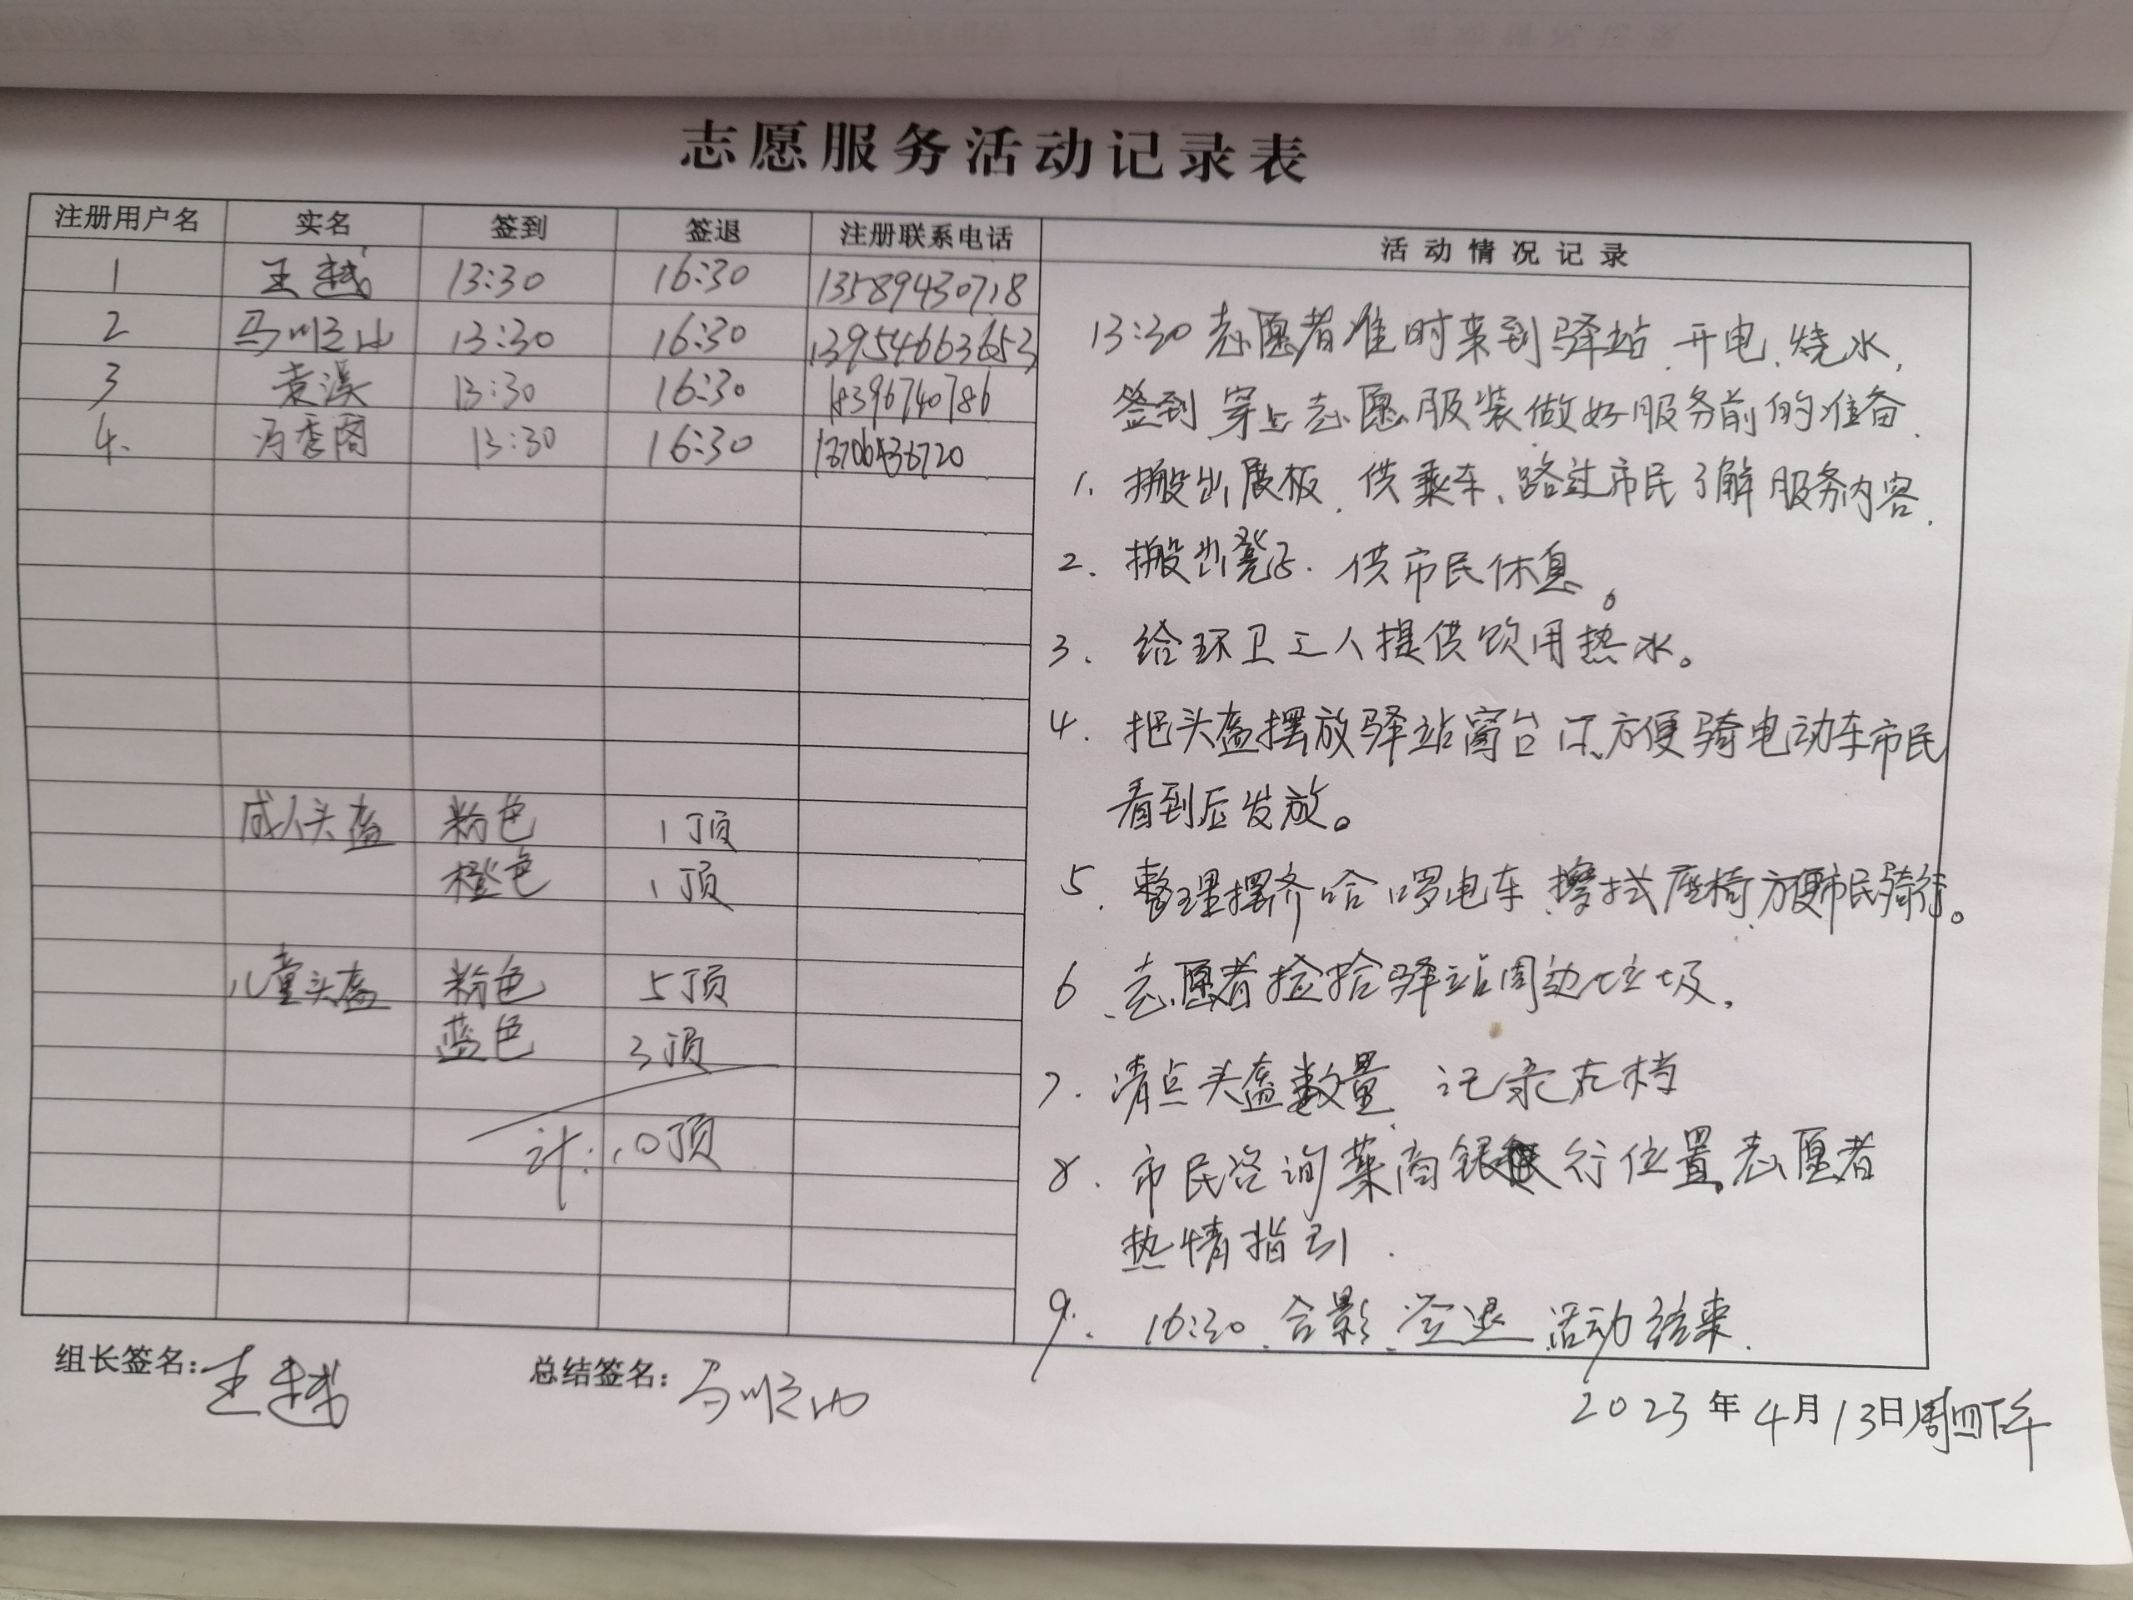 志愿服务活动记录表
注册用户名 实名 签到 签退 注册联系电话 活动情况记录
1 王越 13:30 16:30 13589430718
2 马川之山 13:30 16:30 13954663653
3 袁溪 13:30 16:30 18396740786
4. 冯秀阁 13:30 16:30
成人头盔 粉色 1顶
橙色 1顶
儿童头盔 粉色 5顶
蓝色 3顶
计:10顶
13:30志愿者准时来到驿站.开电.烧水,
签到.穿上志愿服装做好服务前的准备.
1. 搬出展板.供乘车、路过市民了解服务内容.
2. 搬出凳子.供市民休息。
3. 给环卫工人提供饮用热水。
4. 把头盔摆放驿站窗台下.方便骑电动车市民
看到后发放。
5. 整理摆齐哈啰电车.擦拭座椅.方便市民骑行。
6.志愿者捡拾驿站周边垃圾.
7.清点头盔数量.记录在档
8.市民咨询莱商银行位置.志愿者
热情指引.
9. 16:30.合影.签退.活动结束.
组长签名:王越 总结签名:马川之山
2023年4月13日周四下午